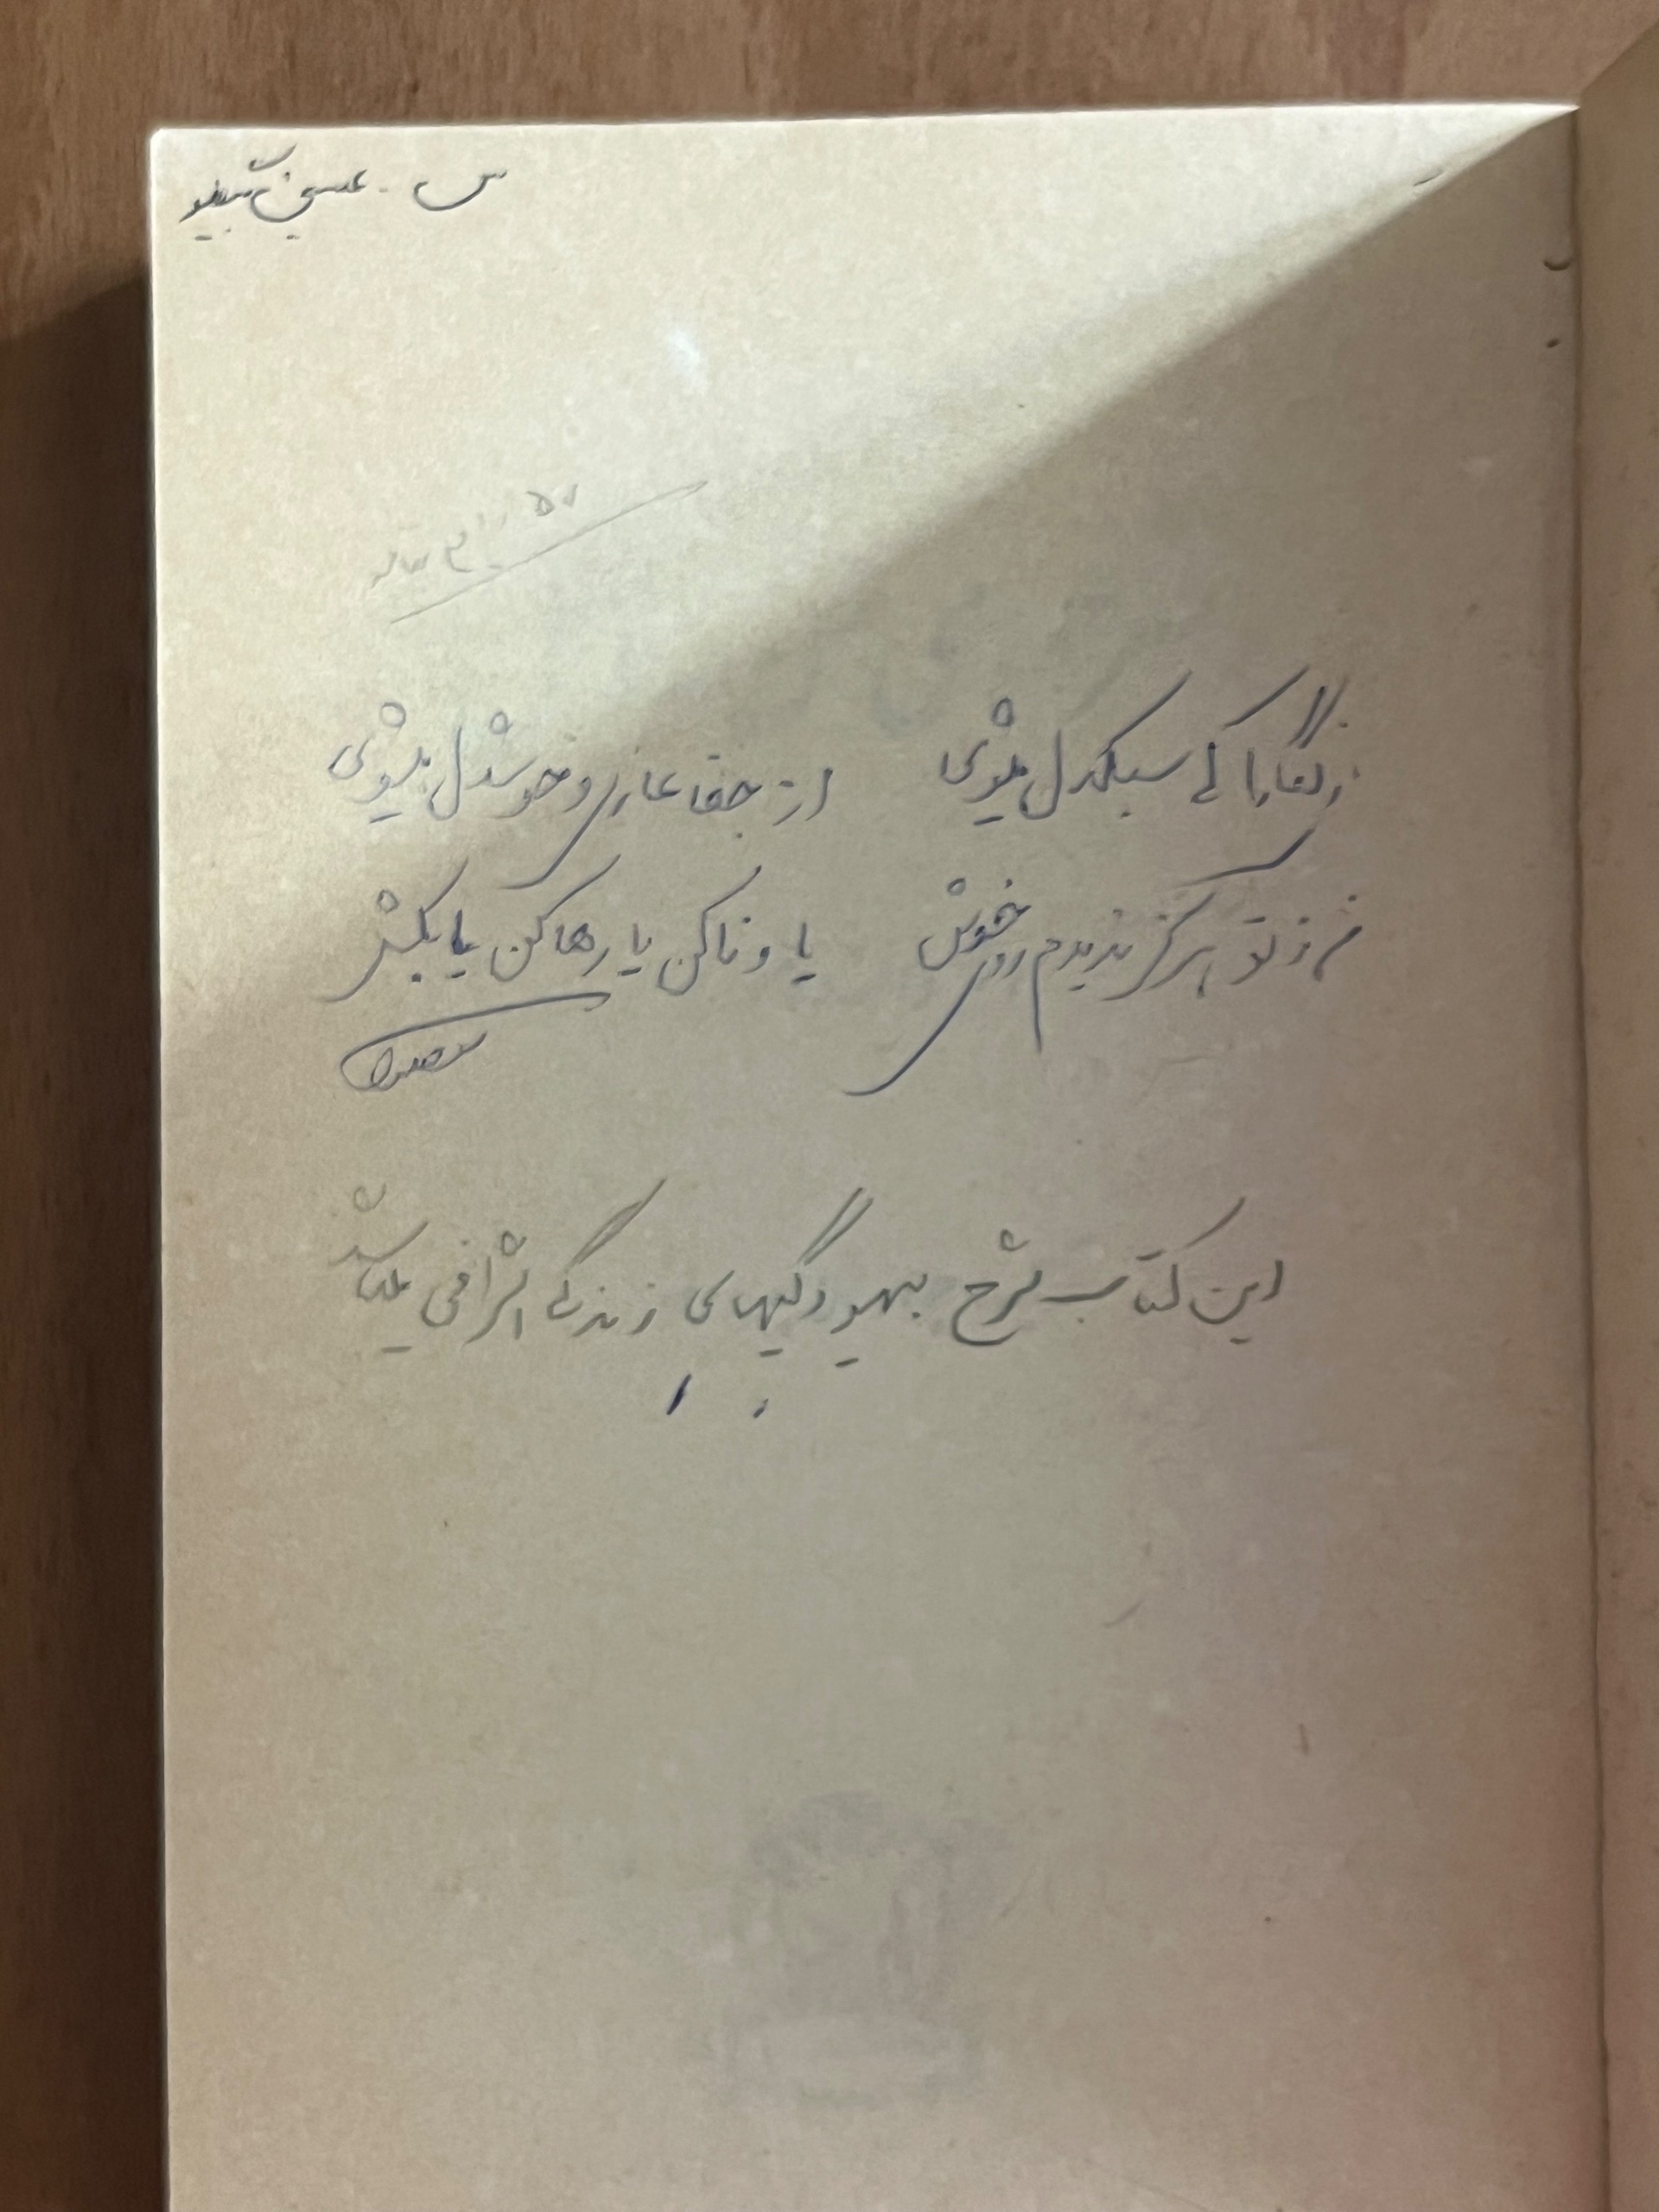 س.
زنگارا کی سبکدل میشوی    از جفا عاری و خوشدل میشوی
من ز تو هرگز ندیدم روی خوش    یا وفا کن یا رها کن یا بکش
این کتاب شرح بیهودگیهای زندگی اشرافی میباشد